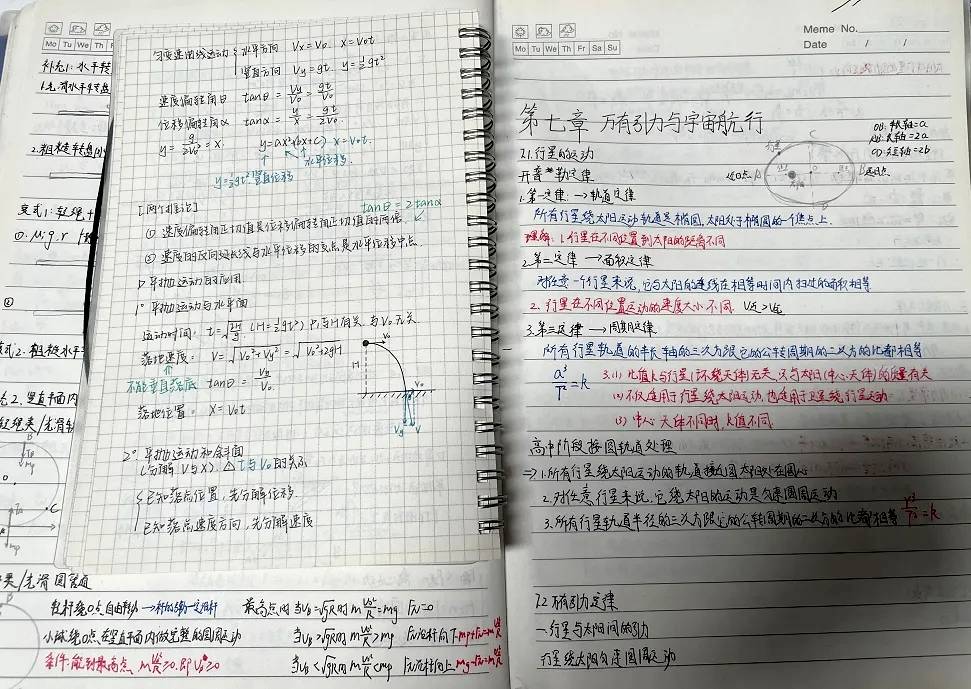 Mo Tu We Th F
补充1: 水平转
1.光滑水平转盘
2.粗糙转盘问
变式1: 轻绳+
①. μ.g.r
②
式2. 粗糙水平
充2. 竖直平面内
匀变速曲线运动 水平方向 Vx=V₀. X=V₀t
竖直方向 Vy=gt. y=½gt²
速度偏转角θ tanθ=Vy/V₀=gt/V₀
位移偏转角α tanα=y/x=gt/2V₀.
y=ax²(bx+c) x=V₀t.
水平位移.
y=½gt² 竖直位移
[两个推论] tanθ=2tanα
① 速度偏转角正切值是位移偏转角正切值的两倍
② 速度的反向延长线与水平位移的交点是水平位移中点
▷平抛运动的应用
1° 平抛运动与水平面
运动时间: t=√(2H/g) (H=½gt²) 只与H有关. 与V₀无关
落地速度: V=√(V₀²+Vy²)=√(V₀²+2gH)
不能垂直落底 tanθ=Vy/V₀.
落地位置: X=V₀t
H V₀
V₀
Vy V
2° 平抛运动和斜面
(分解V与X). △t与V₀的关系
已知落点位置, 先分解位移.
已知落点速度方向, 先分解速度
类/光滑圆管道
轻杆绕O点自由转动
最高点时 当V_B=√gR时 mV_B²/R=mg F_N=0
小球绕O点在竖直平面内做完整的圆周运动
当V_B>√gR时 mV_B²/R>mg F_N沿杆向下 mg+F_N=mV_B²/R
条件: 能到最高点 mV_B²/R≥0. 即V_B≥0
当V_B<√gR时 mV_B²/R<mg F_N沿杆向上 mg-F_N=mV_B²/R
Mo Tu We Th Fr Sa Su
Meme No.
Date / /
第七章 万有引力与宇宙航行
7.1.行星的运动
开普勒定律
行星
近日点 A
太阳
B 远日点.
C
O
D
OB: 半长轴=a
AB: 长轴=2a
CD: 短轴=2b
1.第一定律: → 轨道定律
所有行星绕太阳运动轨道是椭圆, 太阳处于椭圆的一个焦点上.
理解: 1.行星在不同位置到太阳的距离不同
2.第二定律 → 面积定律
对任意一个行星来说, 它与太阳的连线在相等时间内扫过的面积相等
2. 行星在不同位置运动的速度大小不同. V近>V远
3.第三定律 → 周期定律
所有行星轨道的半长轴的三次方跟它的公转周期的二次方的比都相等
a³/T²=k 3.(1) 比值k与行星(环绕天体)无关, 只与太阳(中心天体)的质量有关
(2) 不仅适用于行星绕太阳运动, 也适用于卫星绕行星运动
(3) 中心天体不同时, k值不同.
高中阶段按圆轨道处理
⇒1.所有行星绕太阳运动的轨道接近圆太阳处在圆心
2.对任意行星来说, 它绕太阳的运动是匀速圆周运动
3.所有行星轨道半径的三次方跟它的公转周期的二次方的比都相等 r³/T²=k
7.2 万有引力定律
一.行星与太阳间的引力
行星绕太阳匀速圆周运动